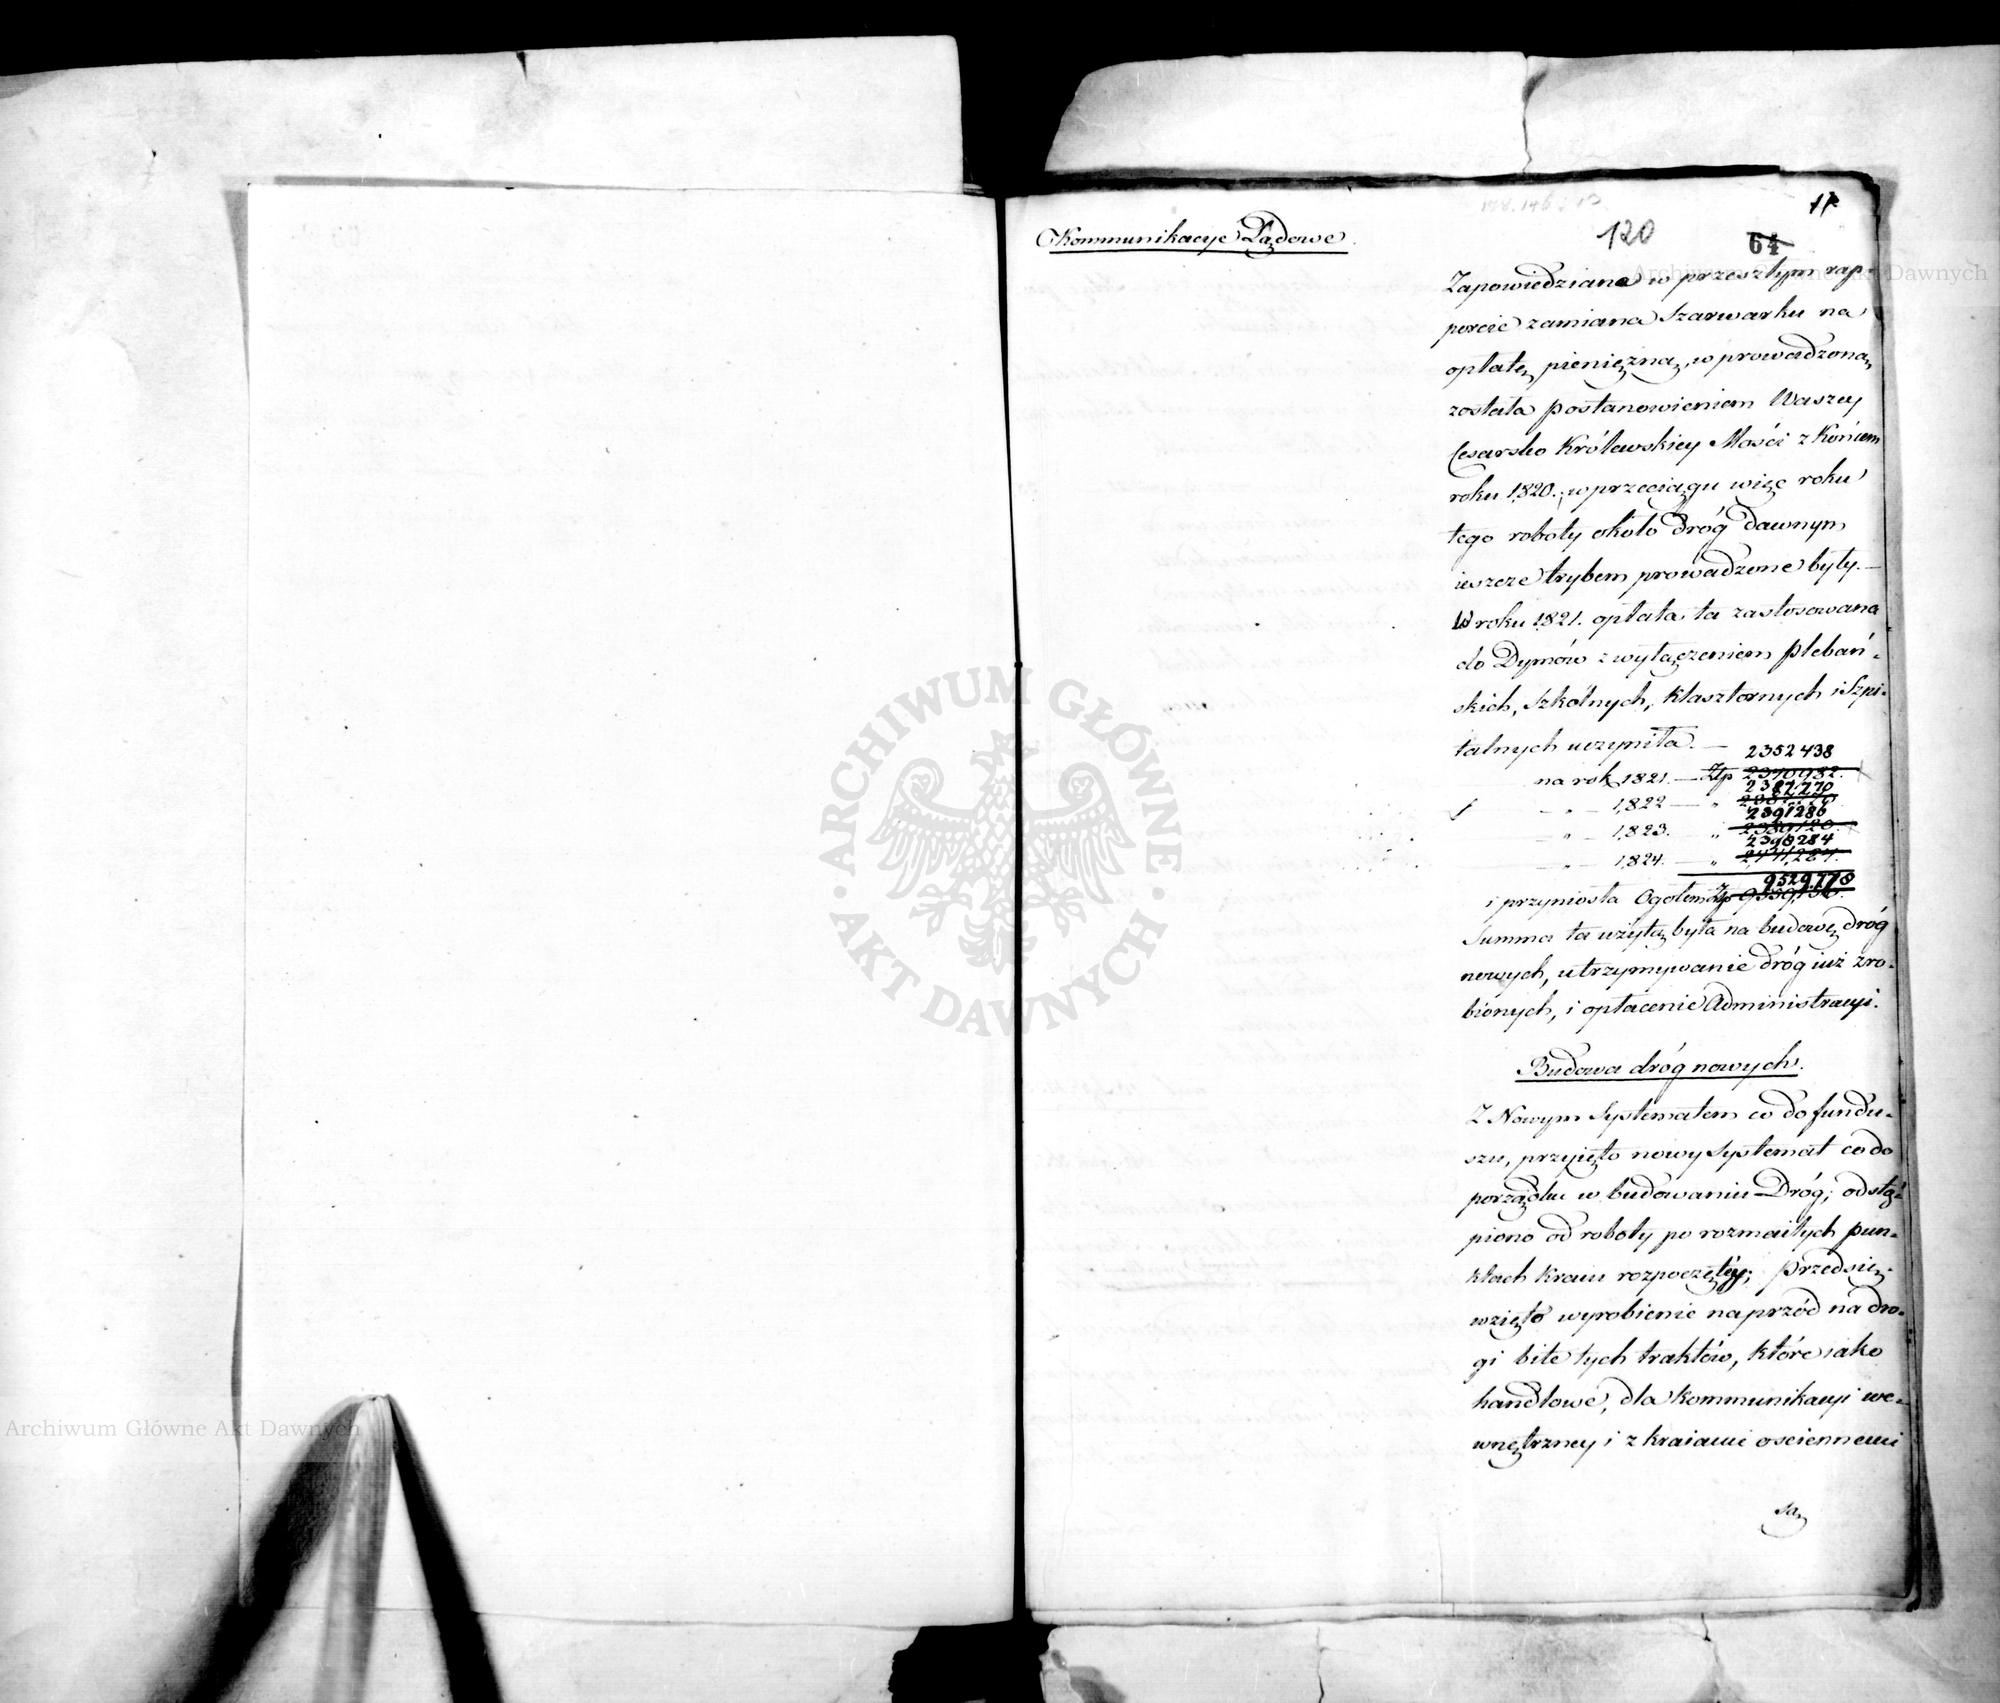 11
120
64
Kommunikacye Lądowe.
Zapowiedziana w przeszłym rap-
porcie zamiana Szarwarku na
opłatę pieniężną, wprowadzoną
została postanowieniem Waszey
Cesarsko Królewskiey Mości z Końcem
roku 1820.; w przeciągu więc roku
tego roboty około dróg dawnym
ieszcze trybem prowadzone były. —
W roku 1821. opłata ta zastosowana
do Dymów z wyłączeniem plebań-
skich, Szkolnych, Klasztornych i Szpi-
talnych uczyniła. —
2352438
na rok 1821. — Złp 2370982.
2387770
— " — 1822 — "
2391286
— " — 1823. " 2389120.
2398284
— " — 1824. — " 2,441,284.
9529778
i przyniosła Ogołem Złp
Summa ta użytą była na budowę dróg
nowych, utrzymywanie dróg iuż zro-
bionych, i opłacenie Administracyi.
Budowa dróg nowych.
Z Nowym Systematem co do fundu-
szu, przyięto nowy Systemat co do
porządku w budowaniu Dróg; odstą-
piono od roboty po rozmaitych pun-
ktach Kraiu rozpoczętey; przedsię-
wzięto wyrobienie naprzód na dro-
gi bite tych traktów, które iako
handlowe, dla Kommunikacyi we-
wnętrzney i z kraiami osciennemi
są
ARCHIWUM GŁÓWNE
AKT DAWNYCH
Archiwum Główne Akt Dawnych
Archiwum Główne Akt Dawnych